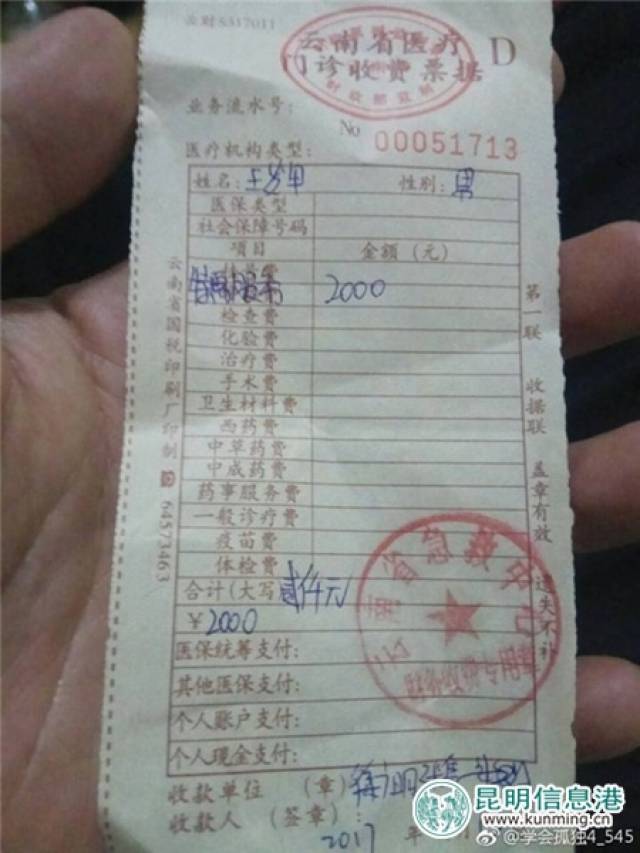 云财S317011
云南省医疗
门诊收费票据 D
财政部监制
业务流水号：
No 00051713
医疗机构类型：
姓名： 性别：男
医保类型
社会保障号码
项目 金额（元）
2000
检查费
化验费
治疗费
手术费
卫生材料费
西药费
中草药费
中成药费
药事服务费
一般诊疗费
疫苗费
体检费
合计（大写 贰仟元
￥2000
医保统筹支付：
其他医保支付：
个人账户支付：
个人现金支付：
收款单位 （章）
收款人 （签章）：
2017 年
云南省国税印刷厂印制 64573463
第一联 收据联 盖章有效 遗失不补
云南省急救中心
财务收费专用章
昆明信息港
www.kunming.cn
@学会孤独4_545